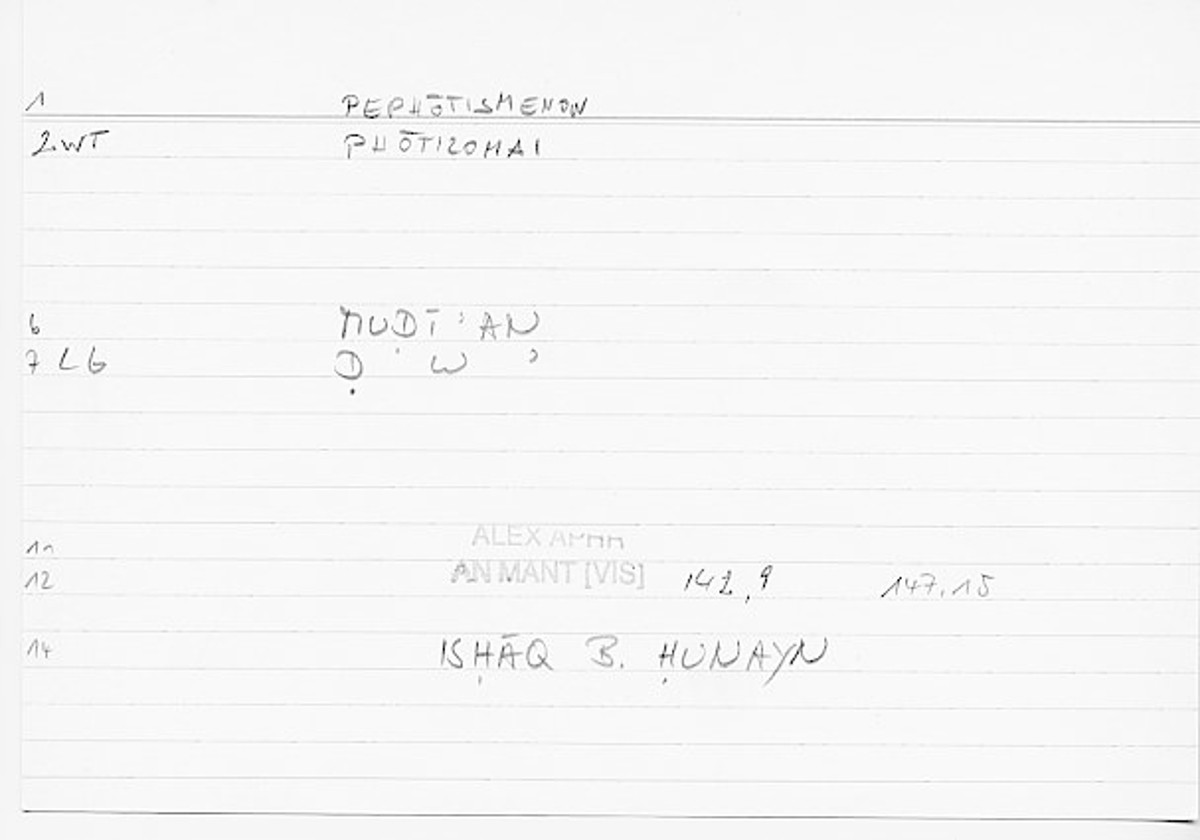 1 PEPHŌTISMENON
2WT PHŌTIZOMAI
6 MUḌĪʾAN
7 LG Ḍ W ʾ
11 ALEX APHR
12 AN MANT [VIS] 142,9 147,15
14 ISḤĀQ B. ḤUNAYN